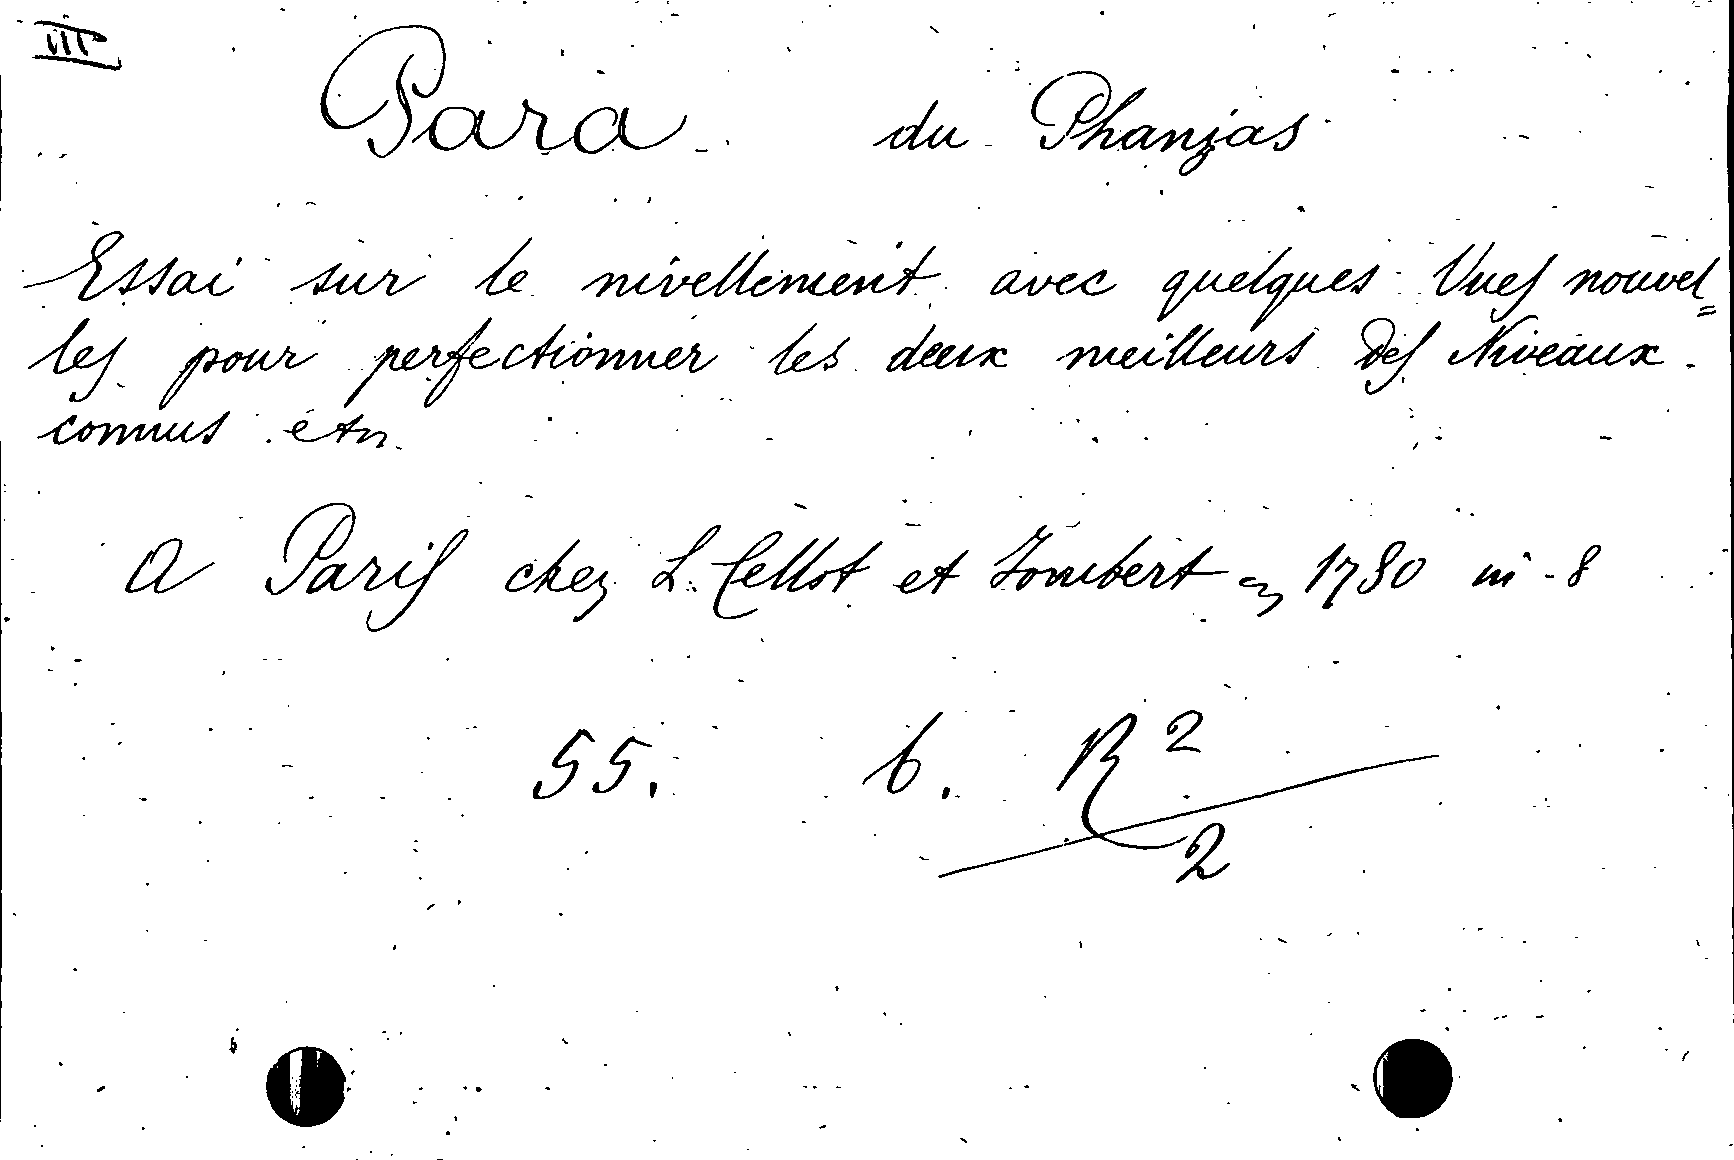 III
Para du Phanjas
Essai sur le nivellement avec quelques Vues nouvel=
les pour perfectionner les deux meilleurs des Niveaux
connus etc.
A Paris chez L. Cellot et Jombert 1780 in-8
55. b. R 2
2